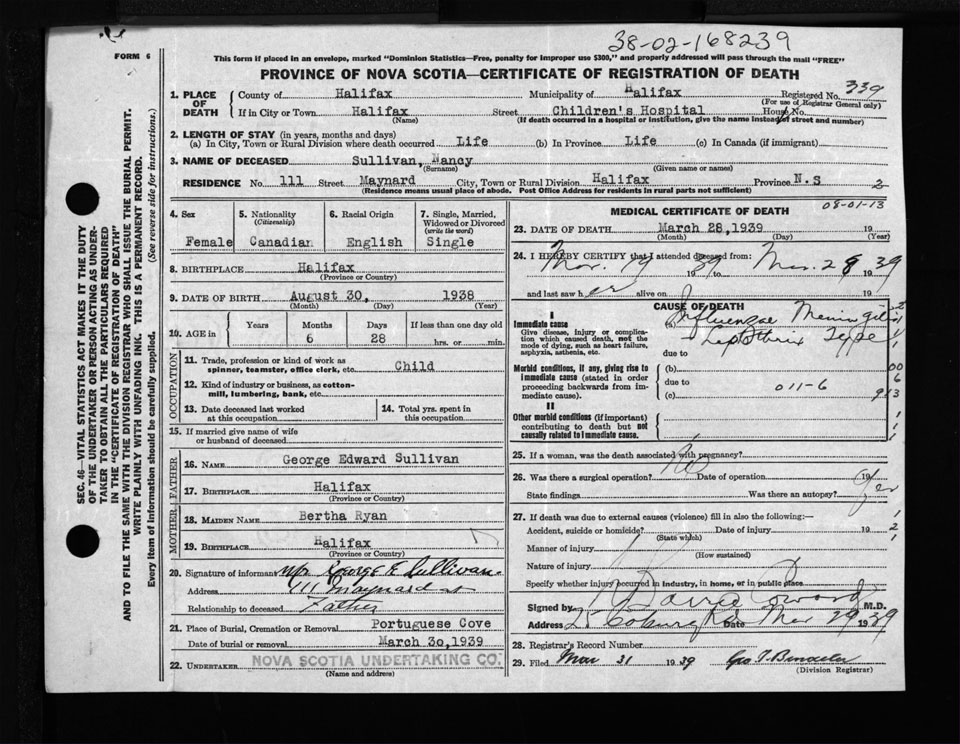 38-02-168239
FORM 6
This form if placed in an envelope, marked "Dominion Statistics—Free, penalty for improper use $300," and properly addressed will pass through the mail "FREE"
PROVINCE OF NOVA SCOTIA—CERTIFICATE OF REGISTRATION OF DEATH
SEC. 46—VITAL STATISTICS ACT MAKES IT THE DUTY
OF THE UNDERTAKER OR PERSON ACTING AS UNDER-
TAKER TO OBTAIN ALL THE PARTICULARS REQUIRED
IN THE "CERTIFICATE OF REGISTRATION OF DEATH"
AND TO FILE THE SAME WITH THE DIVISION REGISTRAR WHO SHALL ISSUE THE BURIAL PERMIT.
WRITE PLAINLY WITH UNFADING INK. THIS IS A PERMANENT RECORD.
Every item of information should be carefully supplied. (See reverse side for instructions.)
1. PLACE OF DEATH County of Halifax Municipality of Halifax Registered No. 339
(For use of Registrar General only)
If in City or Town Halifax Street Children's Hospital House No.
(Name) (If death occurred in a hospital or institution, give the name instead of street and number)
2. LENGTH OF STAY (in years, months and days)
(a) In City, Town or Rural Division where death occurred Life (b) In Province Life (c) In Canada (if immigrant)
3. NAME OF DECEASED Sullivan, Nancy
(Surname) (Given name or names)
RESIDENCE No. 111 Street Maynard City, Town or Rural Division Halifax Province N.S 2
(Residence means usual place of abode. Post Office Address for residents in rural parts not sufficient)
4. Sex Female
5. Nationality (Citizenship) Canadian
6. Racial Origin English
7. Single, Married, Widowed or Divorced (write the word) Single
8. BIRTHPLACE Halifax
(Province or Country)
9. DATE OF BIRTH August 30, 1938
(Month) (Day) (Year)
10. AGE in Years Months 6 Days 28 If less than one day old hrs. or min.
OCCUPATION
11. Trade, profession or kind of work as spinner, teamster, office clerk, etc. Child
12. Kind of industry or business, as cotton-mill, lumbering, bank, etc.
13. Date deceased last worked at this occupation
14. Total yrs. spent in this occupation
15. If married give name of wife or husband of deceased
FATHER
16. NAME George Edward Sullivan
17. BIRTHPLACE Halifax
(Province or Country)
MOTHER
18. MAIDEN NAME Bertha Ryan
19. BIRTHPLACE Halifax
(Province or Country)
20. Signature of informant Mr George E Sullivan
Address 111 Maynard st
Relationship to deceased Father
21. Place of Burial, Cremation or Removal Portuguese Cove
Date of burial or removal March 30, 1939
22. UNDERTAKER NOVA SCOTIA UNDERTAKING CO.
(Name and address)
MEDICAL CERTIFICATE OF DEATH 08-01-13
23. DATE OF DEATH March 28, 1939 19
(Month) (Day) (Year)
24. I HEREBY CERTIFY that I attended deceased from:
Mar. 19 1939 to Mar. 28 1939
and last saw her alive on 19
CAUSE OF DEATH
I
Immediate cause (a) Influenzae Meningitis
Give disease, injury or complication which caused death, not the mode of dying, such as heart failure, asphyxia, asthenia, etc.
Leptothrix Type
due to
Morbid conditions, if any, giving rise to immediate cause (stated in order proceeding backwards from immediate cause).
(b)
due to 011-6
(c) 913
II
Other morbid conditions (if important) contributing to death but not causally related to immediate cause.
25. If a woman, was the death associated with pregnancy?
26. Was there a surgical operation? No Date of operation 19
State findings Was there an autopsy? Yes
27. If death was due to external causes (violence) fill in also the following:—
Accident, suicide or homicide? Date of injury 19
(State which)
Manner of injury
(How sustained)
Nature of injury
Specify whether injury occurred in industry, in home, or in public place
Signed by Coward M.D.
Address Coburg Rd Date Mar 29 1939
28. Registrar's Record Number
29. Filed Mar 31 1939 Geo T.
(Division Registrar)